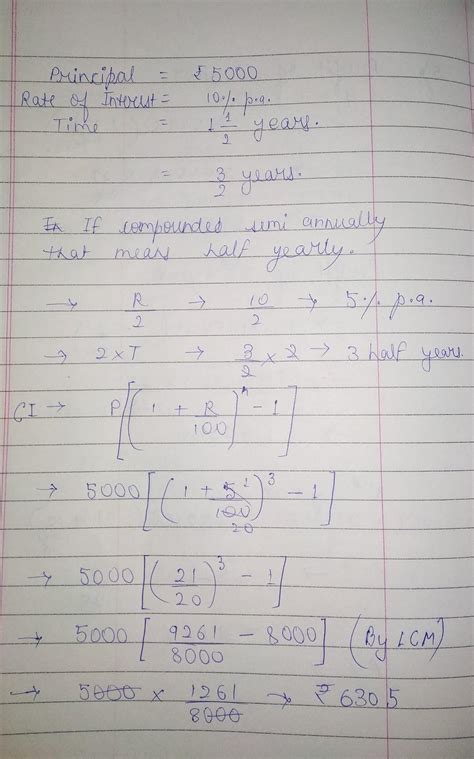 Principal = ₹ 5000
Rate of Interest = 10% p.a.
Time = 1 1/2 years.
= 3/2 years.
If compounded semi annually
that means half yearly.
→ R/2 → 10/2 → 5% p.a.
→ 2×T → 3/2 × 2 → 3 half years.
CI → P[(1 + R/100)^n - 1]
→ 5000[(1 + 5^1/100 20)^3 - 1]
→ 5000[(21/20)^3 - 1]
→ 5000[9261 - 8000/8000] (By LCM)
→ 5000 × 1261/8000 → ₹ 630 5